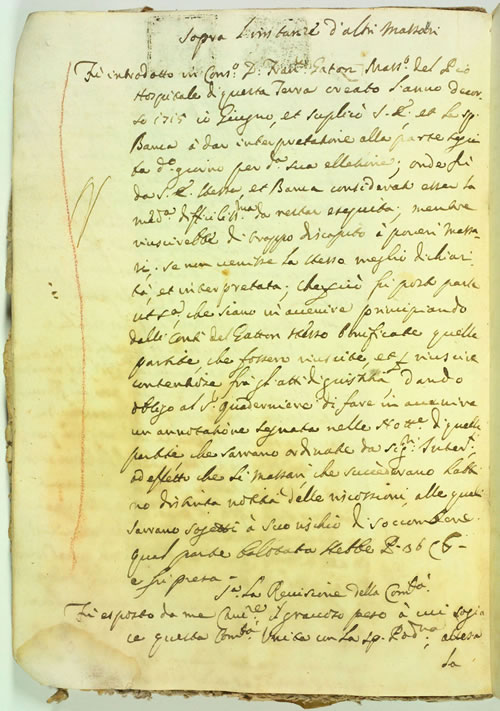 Sopra l'instanze d'altri Massari
Fù introdotto in Cons.o D. Gaton Mass.o del Pio
Hospitale di questa Terra creato l'anno decor-
so 1715 io Giugno, et suplicò S. E. et la sp.
Banca à dar interpretatione alla parte segui-
ta d.o giorno per d.a sua ellatione; onde fù
da S. E. stessa, et Banca considerat esser la
med.a difficiliss.ma da restar eseguita, mentre
riuscirebbe di troppo discapito à poveri Massa-
ri, se non venisse la stessa meglio dichiari-
ta, et interpretata; che perciò fù posto parte
che siano in avenire principiando
dalli Conti del Gatton stesso bonificate quelle
partite che fossero riuscite et riuscire
contentiose frà gl'atti di giustitia dando
obligo al S.r quaderniere di fare in avenire
un annotatione segnata nelle Notte di quelle
partite che sarrano ordinate da Sig.ri
ad effetto che li Massari, che succederano habbi-
no distinta nottitia delle riscossioni, alle quali
sarrano sogetti à suo rischio di soccombere
qual parte balotata hebbe P. 36 C. 6
e fu presa
S.a La Revisione della Com.tà
Fù esposto da me Canc.re il gravoso peso à cui sogia-
ce questa Com.tà Unita con la sp. Pad.na, attesa
la